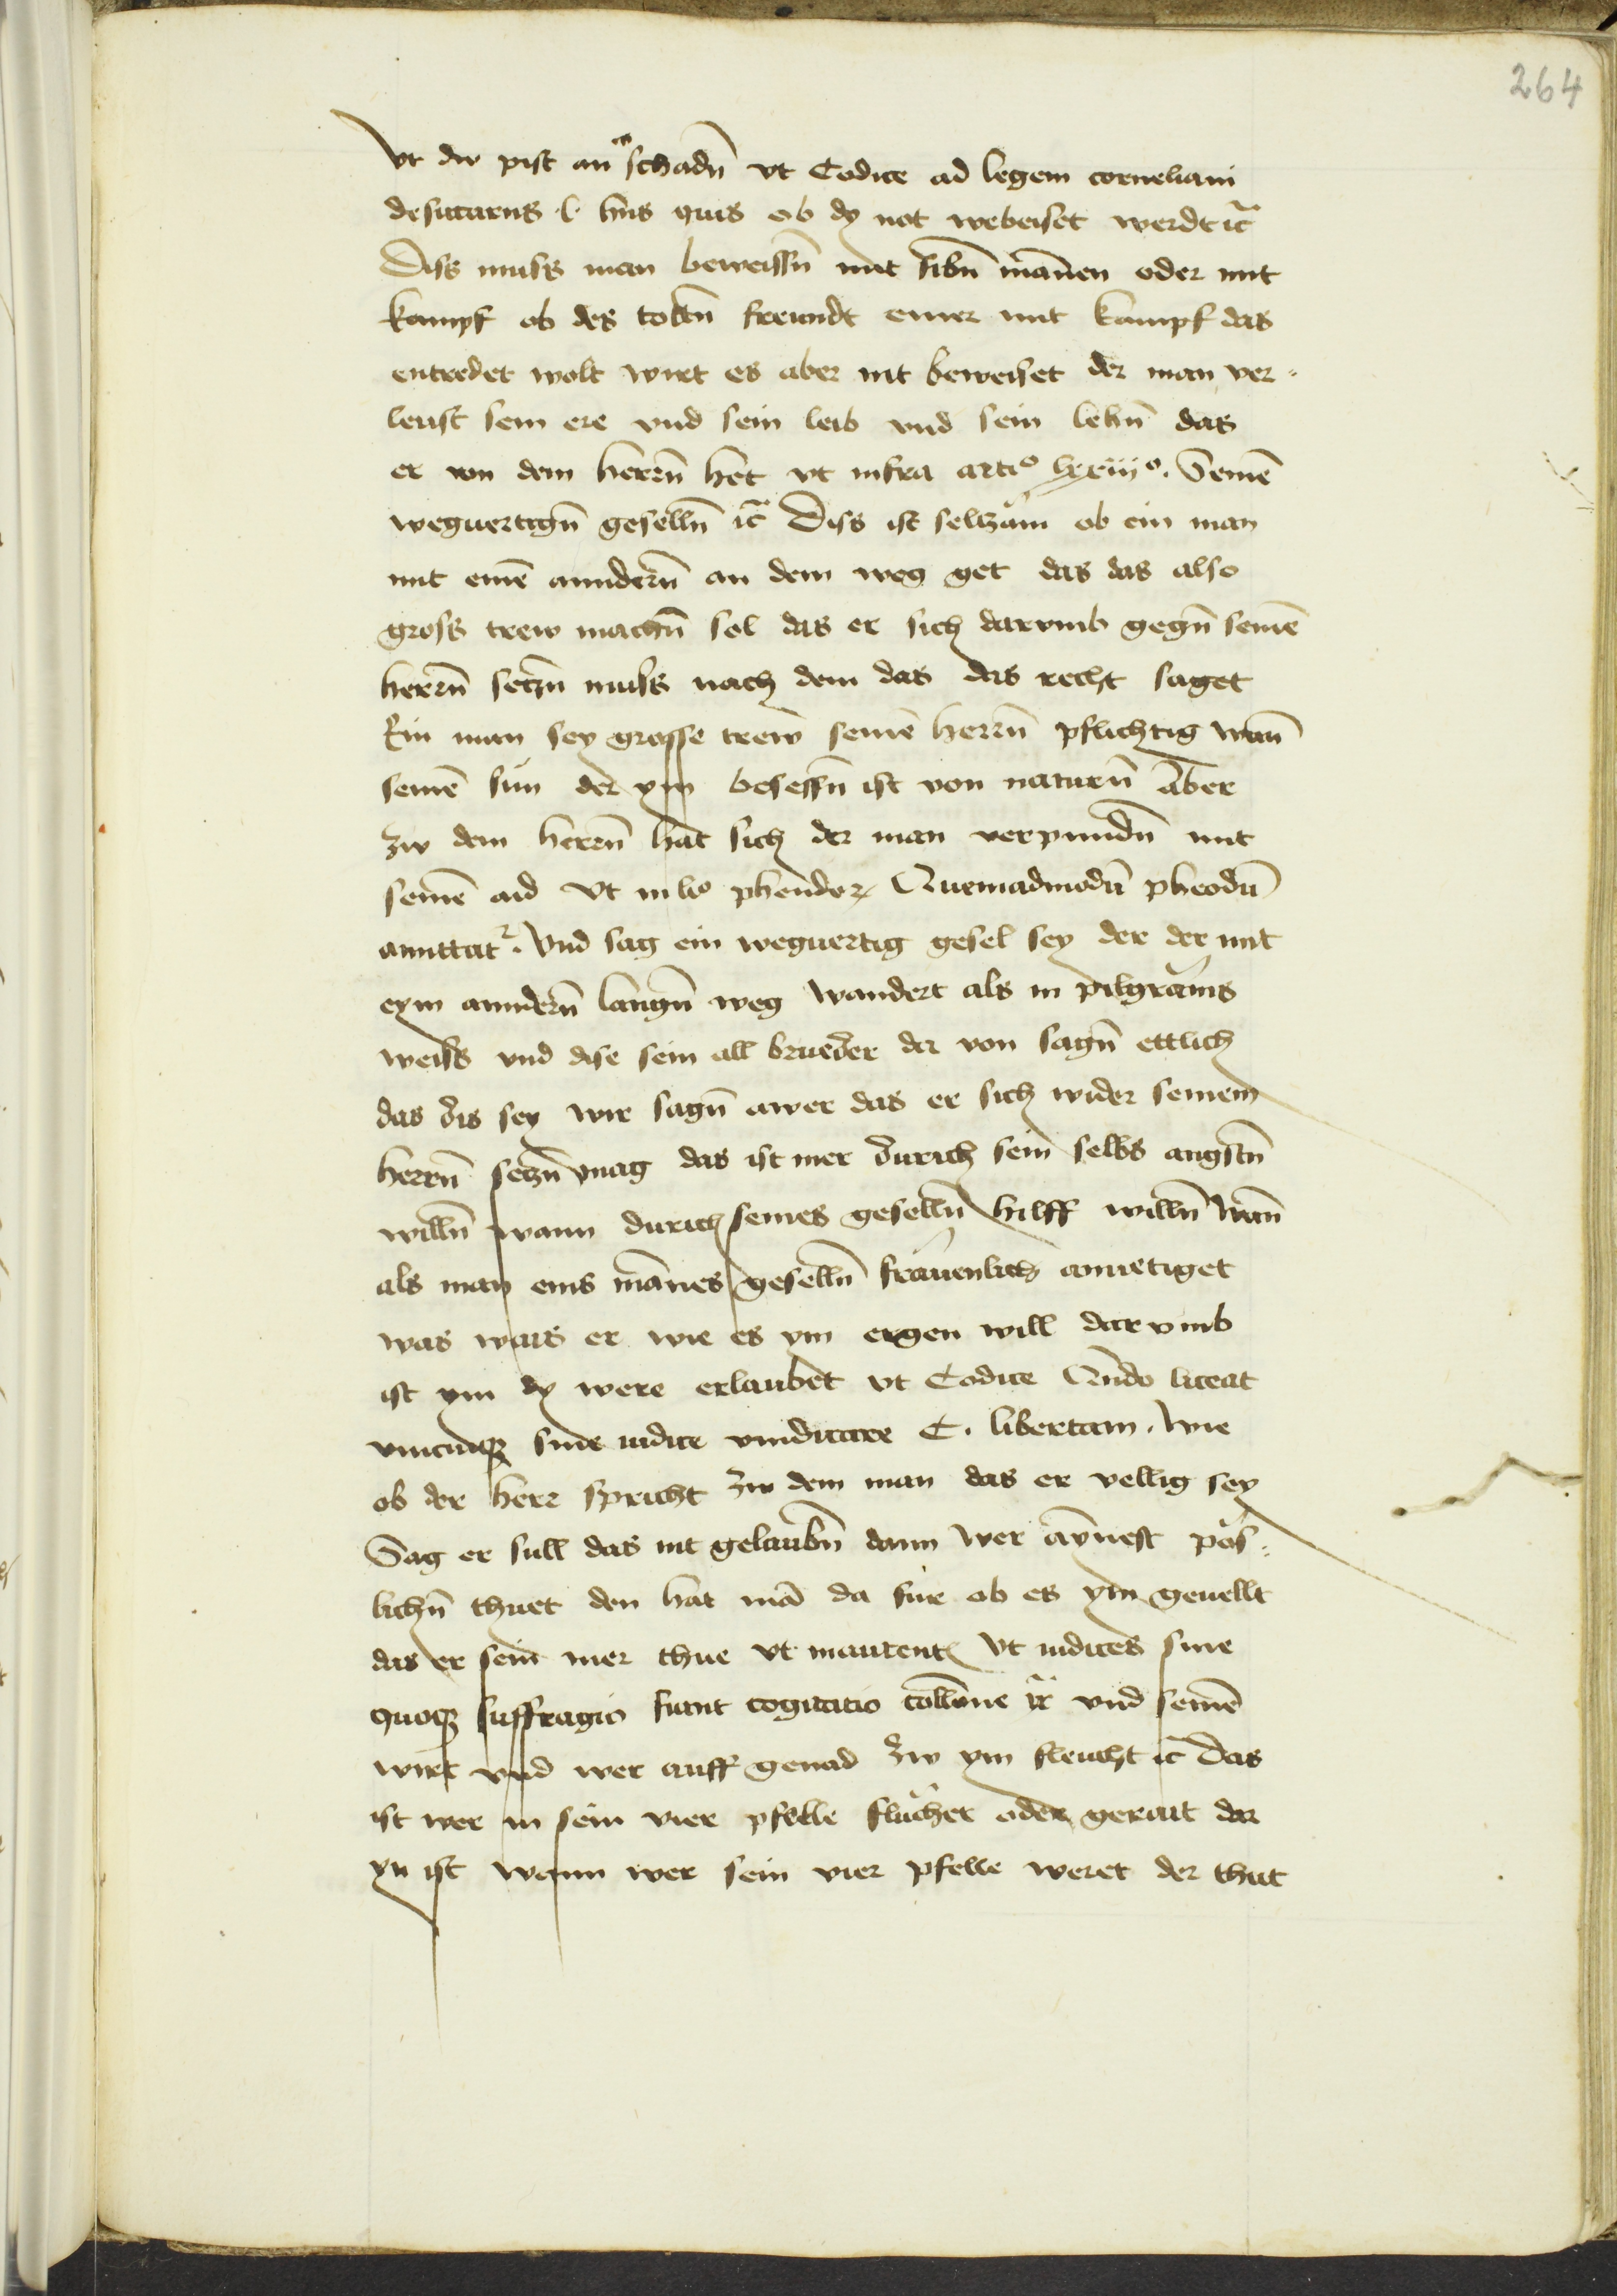 264
Vt dw pist an schadn̄ vt Codice ad legem corneliam
desicarus l. hns quis ob dy not webeiset werdt ꝛc̄
Diss muss man beweissn̄ mit sibn̄ man̄en oder mit
kampf ob des totn̄ freundt einer mit kampf das
entredet wolt wirt es aber nit beweiset der man ver-
leust sein ere vnd sein leib vnd sein lehn̄ das
er von dem herrn̄ het vt infra artio lxxiiiᵒ. Seinē
weguertign̄ geselln̄ ꝛc̄ Diss ist seltzam ob ein man
mit einē anndern̄ an dem weg get das das also
gross trew machn̄ sol das er sich darvmb gegn̄ seinē
herrn̄ setzn̄ muss nach dem das das recht saget
Ein man sey grosse trew seinē herrn̄ pflichtig wan̄
seinē sun der ym besessn̄ ist von naturn̄ Aber
zw dem herrn̄ hat sich der man verpundn̄ mit
seinē aid Vt in lio pheudoꝝ Quemadmodū pheodū
amittatᵘʳ. Vnd sag ein weguertig gesel sey der der mit
eym anndern̄ langn̄ weg wandert als in pilgrams
weiss vnd dise sein all brueder der von sagn̄ ettlich
das dis sey wir sagn̄ awer das er sich wider seinem
herrn̄ setzn̄ mag das ist mer durich sein selbs angstn̄
willn̄ wann durich seines geselln̄ hilff willn̄ wan̄
als man eins man̄es geselln̄ frauenlich anuetiget
was wais er wie es ym ergen will dar vmb
ist ym dy were erlaubet vt Codice Qn̄do liceat
vnicuiqꝫ sine iudice vindicare C. libertam. Wie
ob der herr spricht zw dem man das er vellig sey
Sag er sull das nit gelaubn̄ dann wer aynest pos-
lichn̄ thuet den hat mā da fur ob es ym geuellt
das er sein mer thue vt in autent Vt iudices sine
quoqꝫ suffragio fiant cogitatio collōne ix vnd seinē
wirt vnd wer auff genad zw ym fleucht ꝛc̄ Das
ist wer in sein vier pfelle fluchet oder gerait dar
yn ist wann wer sein vier pfelle weret der thut